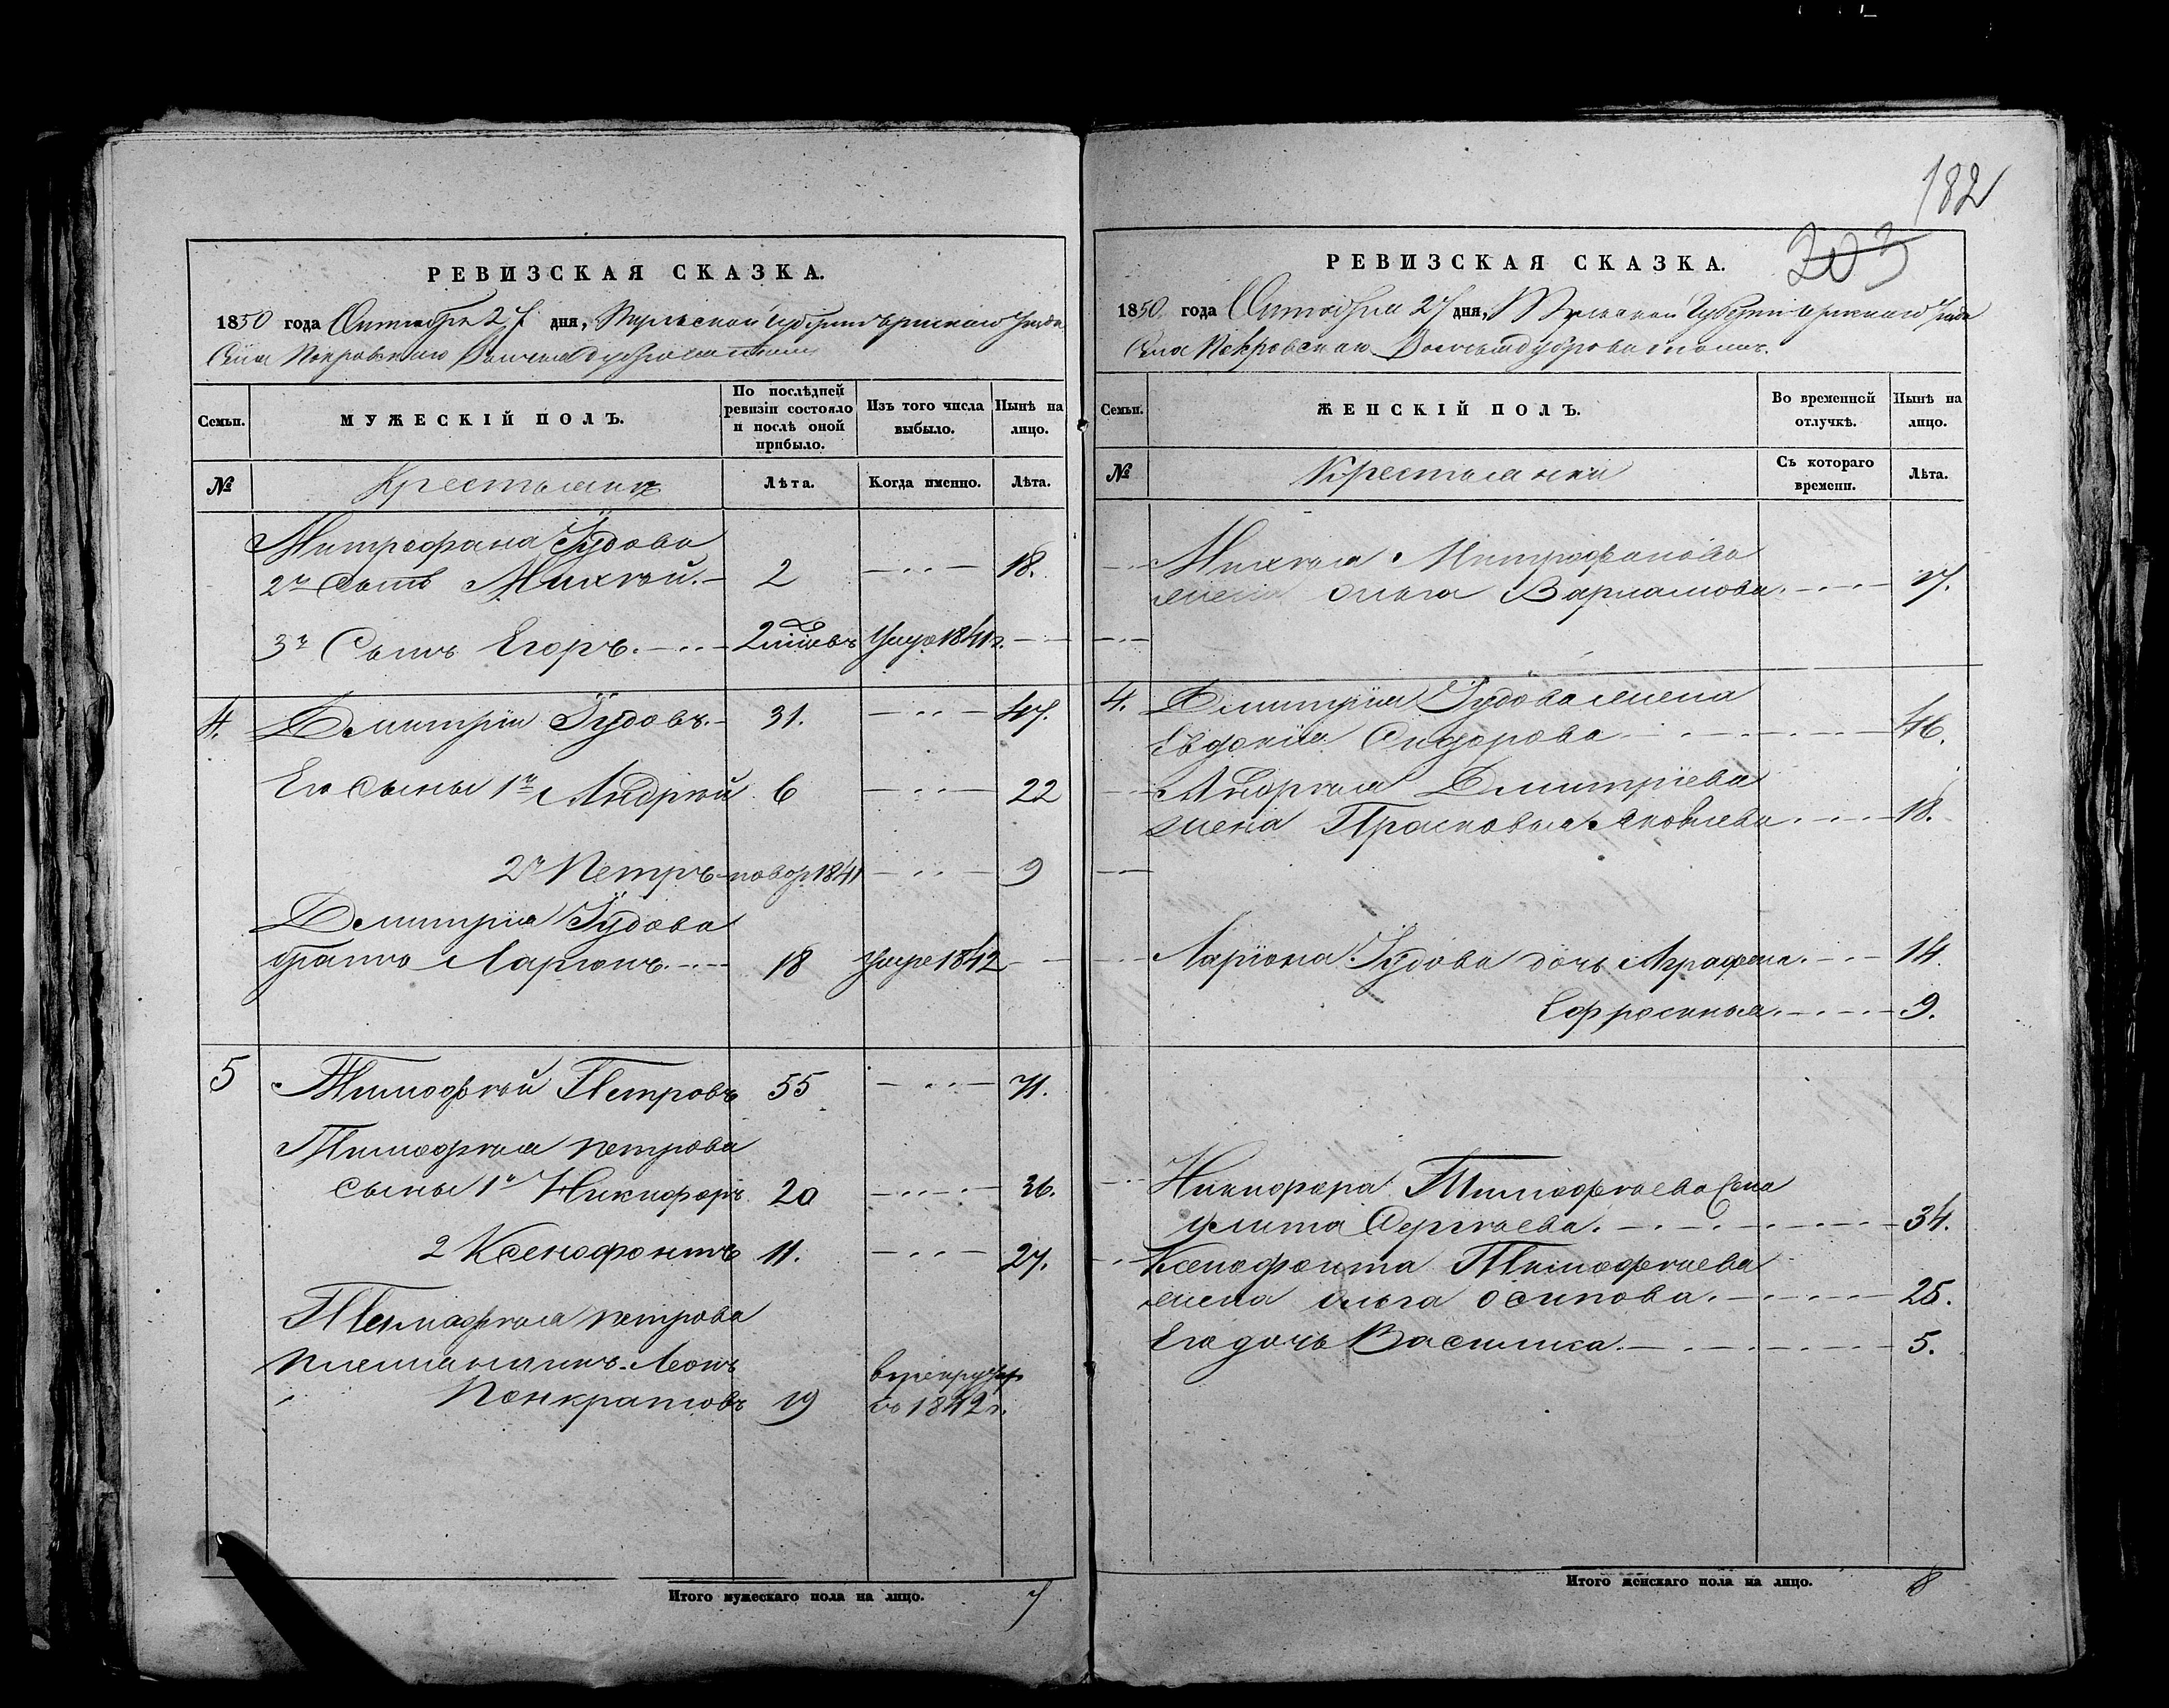 182
203
РЕВИЗСКАЯ СКАЗКА.
1850 года Октября 27 дня, Тульской Губернии Уезда
Села Покровскаго
Семьи.
МУЖЕСКІЙ ПОЛЪ.
По послѣдней ревизіи состояло и послѣ оной прибыло.
Изъ того числа выбыло.
Нынѣ на лицо.
№
Крестьяне
Лѣта.
Когда именно.
Лѣта.
Митрофана Гудова
2й Сынъ Михѣй. 2 18.
3й Сынъ Егоръ. 2 Умре 1841г.
4. Дмитрій Гудовъ. 31. 47.
Его сыны 1й Андрѣй 6 22
2й Петръ новор 1841 9
Дмитрія Гудова
братъ Ларіонъ. 18 Умре 1842
5 Тимофѣй Петровъ 55 71.
Тимофѣя петрова
сыны 1й Никифоръ 20 36.
2 Ксенофонтъ 11. 27.
Тимофѣя петрова
племянникъ Леонъ
Понкратовъ 19 в рекруты
в 1842г.
Итого мужескаго пола на лицо. 7
РЕВИЗСКАЯ СКАЗКА.
1850 года Октября 27 дня, Тульской Губернии Уезда
Села Покровскаго
Семьи.
ЖЕНСКІЙ ПОЛЪ.
Во временной отлучкѣ.
Нынѣ на лицо.
№
Крестьянки
Съ котораго времени.
Лѣта.
Михѣя Митрофанова
жена Ольга Варламова. 17.
4. Дмитрія Гудова жена
Евдокія Сидорова 46.
Андрѣя Дмитріева
жена Прасковья Яковлева. 18.
Ларіона Гудова дочь Аграфена. 14
Ефросинья. 9.
Никифора Тимофѣева жена
Улита Сергѣева. 34.
Ксенофонта Тимофѣева
жена Ольга Осипова. 25.
Его дочь Василиса. 5.
Итого женскаго пола на лицо. 8